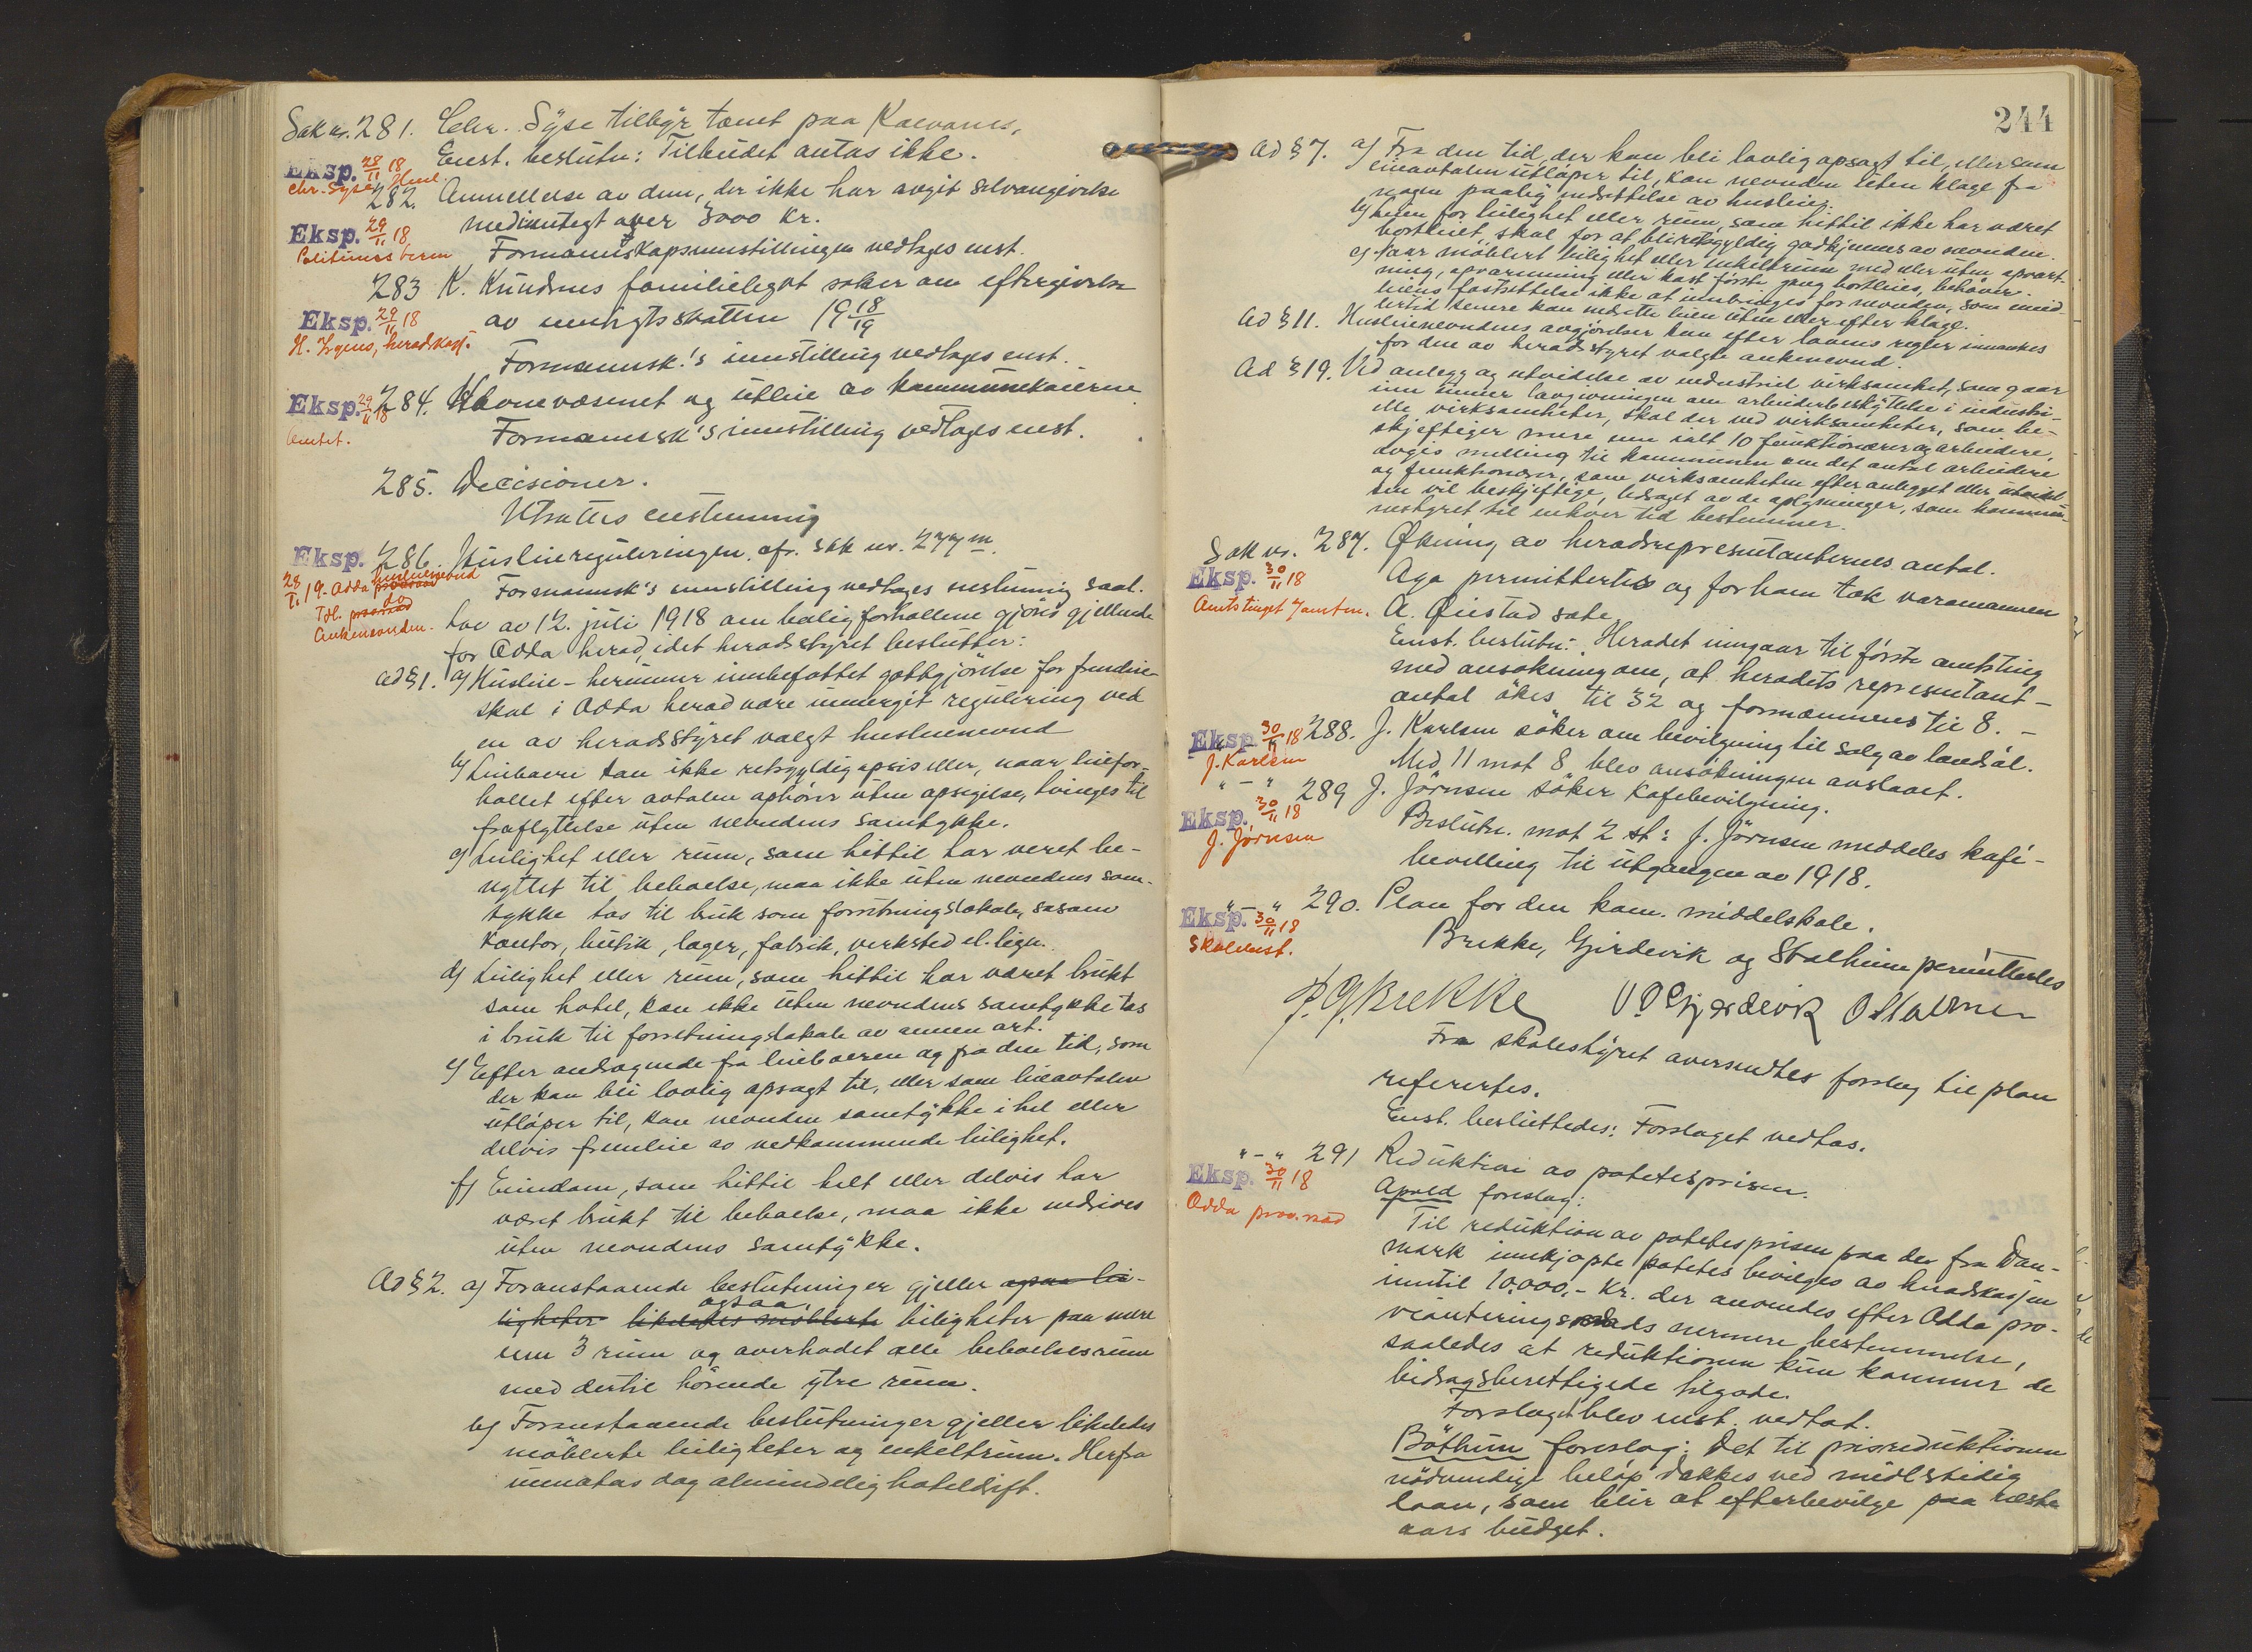 Sak nr. 281. Chr. Syse tilbyr tomt paa Kaevanes,
Enst. beslutn: Tilbudet antas ikke.
Eksp. 28/11 18
Chr. Syse, Henl.
282. Anmeldelse av dem, der ikke har avgit selvangivelse
med indtægt over 3000 kr.
Eksp. 29/11 18
Formannskapsinnstillingen vedtages enst.
283 K. Knudsens familielegat søker om eftergivelse
Eksp. 29/11 18
av inntægtsskatten 19 18/19
H. Lyens, heradskass.
Formannsk.'s innstilling vedtages enst.
Eksp. 29/11 18
284. Havnevæsenet og utleie av kommunekaierne
Amtet.
Formannssk's innstilling vedtages enst.
285. Decisioner.
Utsattes enstemmig
Eksp. 28/11 19 - Odda husleienevnd
286. Husleiereguleringen. cfr. sak nr. 277 m.
Formannsk's innstilling vedtages enstemmig saal.
Tel. do
Ankenevnden.
Lov av 12. juli 1918 om boligforhollene gjøres gjellende
for Odda herad, idet heradsstyret beslutter:
ad § 1. a) Husleie - herunner innbefattet gottgjørelse for fremleie -
skal i Odda herad være unnergit regulering ved
en av heradsstyret valgt husleienevnd
b) Leieboeri kan ikke retsgyldig opsis eller, naar leiefor-
hollet efter avtalen ophører uten opsigelse, tvinges til
fraflyttelse uten nevndens samtykke.
c) Leilighet eller rum, som hittil har været be-
nyttet til beboelse, maa ikke uten nevndens sam-
tykke tas til bruk som forretningslokale, saasom
kontor, butik, lager, fabrik, verksted el. lign.
d) Leilighet eller rum, som hittil har været brukt
som hotel, kan ikke uten nevndens samtykke tas
i bruk til forretningslokale av annen art.
e) Efter andragende fra leieboeren og fra den tid, som
der kan bli lovlig opsagt til, eller som leieavtalen
utløper til, kan nevnden samtykke i hel eller
delvis fremleie av vedkommende leilighet.
f) Eiendom, som hittil helt eller delvis har
været brukt til beboelse, maa ikke nedrives
uten nevndens samtykke.
Ad § 2. a) Foranstaaende beslutninger gjeller ogsaa lei-
ligheter likeledes møblerte ogsaa leiligheter paa mere
enn 3 rum og overhodet alle beboelsesrum
med dertil hørende ytre rum.
b) Foranstaaende beslutninger gjeller likeledes
møblerte leiligheter og enkeltrum. Herfra
unntas dog almindelig hoteldrift.
244
Ad § 7. a) Fra den tid, der kan bli lovlig opsagt til, eller som
leieavtalen utløper til, kan nevnden uten klage fra
nogen paalig nedsettelse av husleien.
b) Leien for leilighet eller rum, som hittil ikke har været
bortleiet, skal for at bli retsgyldig godkjennes av nevnden.
c) Naar møblert leilighet eller enkeltrum med eller uten opvart-
ning, opvarmning eller kost første gang bortleies, behøver
leiens fastsettelse ikke at innbringes for nevnden, som imid-
lertid senere kan nedsette leien uten eller efter klage.
Ad § 11. Husleienevndens avgjørelser kan efter lovens regler innankes
for den av heradsstyret valgte ankenevnd.
Ad § 19. Ved anlegg og utvidelse av industriel virksomhet, som gaar
inn unner lovgivningen om arbeiderbeskyttelse i industri-
elle virksomheter, skal der ved virksomheter, som be-
skjeftiger mere enn ialt 10 funktionærer og arbeidere,
avgis melling til kommunen om det antal arbeidere
og funktionærer, som virksomheten efter anlegget eller utvidel-
sen vil beskjeftige, ledsaget av de oplysninger, som kommune-
nestyret til enhver tid bestemmer.
Sak nr. 287. Økning av heradsrepresentanternes antal.
Eksp. 30/11 18
Aga permittertes og for ham tok varamannen
Amtstinget Jamtm. A. Øiestad sæte
Enst. beslutn: Heradet inngaar til første amtsting
med ansøkning om, at heradets representant-
antal økes til 32 og formænnenes til 8. -
Eksp. 30/11 18 288. J. Karlsen søker om bevilgning til salg av landsøl.
J. Karlsen
Med 11 mot 8 blev ansøkningen avslaaet.
" - " 289 J. Jörnsen søker kafebevilgning.
Eksp. 30/11 18
J. Jörnsen
Beslutn. mot 2 st: J. Jörnsen meddeles kafé-
bevilling til utgangen av 1918.
" - " 290. Plan for den kom. middelskole.
Eksp. 30/11 18
Skolebest.
Brekke, Gjerdevik og Stalheim permittertes
P. G. Brekke V O Gjerdevik O Stalheim
Fra skolestyret oversendtes forslag til plan
referertes.
Enst. besluttedes: Forslaget vedtas.
" - " 291 Reduktion av potetesprisen.
Eksp. 30/11 18
Odda prov. raad
Apold foreslog:
Til reduktion av potetesprisen paa der fra Dan-
mark innkjøpte potetes bevilges av heradskassen
inntil 10.000.- kr. der anvendes efter Odda pro-
vianteringsraads nermere bestemmelse,
saaledes at reduktionen kun kommer de
bidragsberettigede tilgode.
Forslaget blev enst. vedtat.
Böthun foreslog: Det til prisreduktionen
nødvendige beløp dækkes ved midlertidig
laan, som blir at efterbevilge paa næste
aars budget.